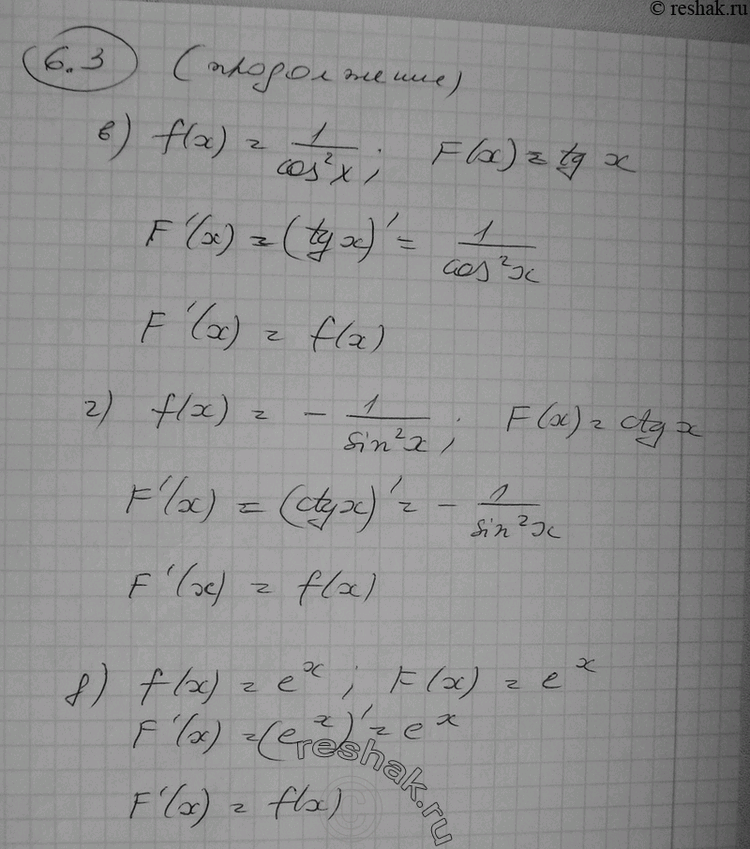 © reshak.ru
6.3 (продолжение)
в) f(x) = 1/cos²x; F(x) = tg x
F'(x) = (tg x)' = 1/cos²x
F'(x) = f(x)
г) f(x) = - 1/sin²x; F(x) = ctg x
F'(x) = (ctg x)' = - 1/sin²x
F'(x) = f(x)
д) f(x) = eˣ; F(x) = eˣ
F'(x) = (eˣ)' = eˣ
reshak.ru
F'(x) = f(x)